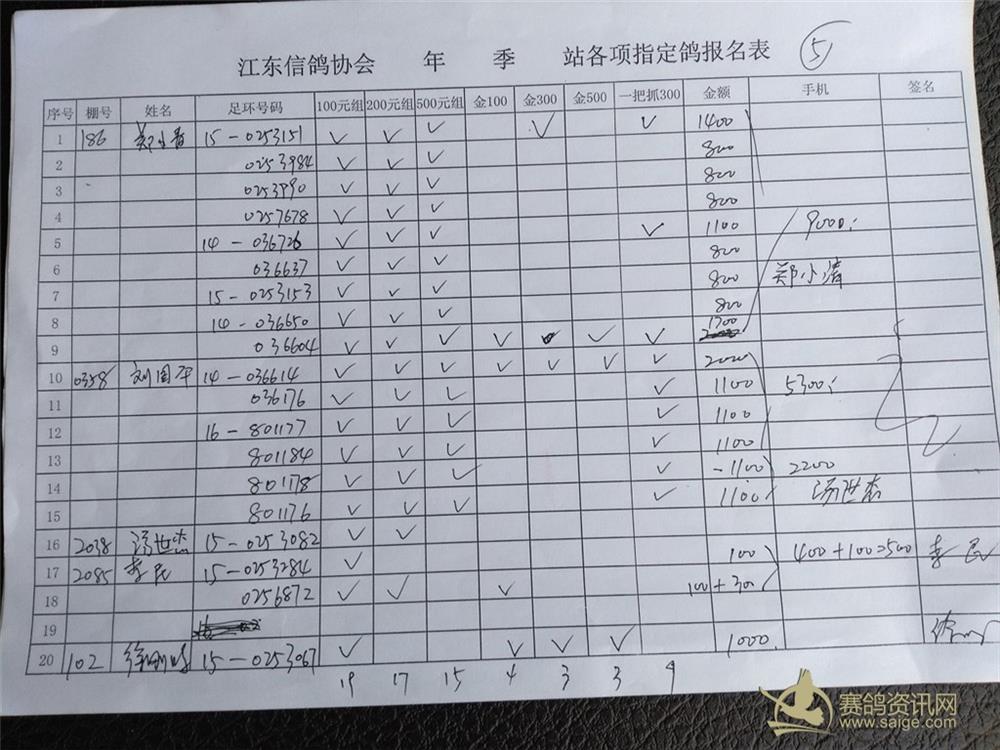 江东信鸽协会 年 季 站各项指定鸽报名表 ⑤
序号 棚号 姓名 足环号码 100元组 200元组 500元组 金100 金300 金500 一把抓300 金额 手机 签名
1 186 郑小清 15-0253151 ✓ ✓ ✓ ✓ ✓ 1400
2 0253984 ✓ ✓ ✓ 800
3 0253990 ✓ ✓ ✓ 800
4 0257678 ✓ ✓ ✓ 800
5 14-036726 ✓ ✓ ✓ ✓ 1100 9000
6 036637 ✓ ✓ ✓ 800
7 15-0253153 ✓ ✓ ✓ 800 郑小清
8 14-036650 ✓ ✓ ✓ 800
9 036604 ✓ ✓ ✓ ✓ ✓ ✓ 1700
10 0358 刘国平 14-036614 ✓ ✓ ✓ ✓ ✓ ✓ ✓ 2000
11 036176 ✓ ✓ ✓ ✓ 1100 5300
12 16-801177 ✓ ✓ ✓ ✓ 1100
13 801184 ✓ ✓ ✓ ✓ 1100
14 801178 ✓ ✓ ✓ ✓ 1100 2200
15 801176 ✓ ✓ ✓ ✓ 1100 汤世杰
16 2038 汤世杰 15-0253082 ✓ ✓
17 2085 李民 15-0253284 ✓ 100 400+100=500 李民
18 0256872 ✓ ✓ ✓ 100+300
19
20 102 15-0253067 ✓ ✓ ✓ ✓ 1000
19 17 15 4 3 3 9
赛鸽资讯网
www.saige.com